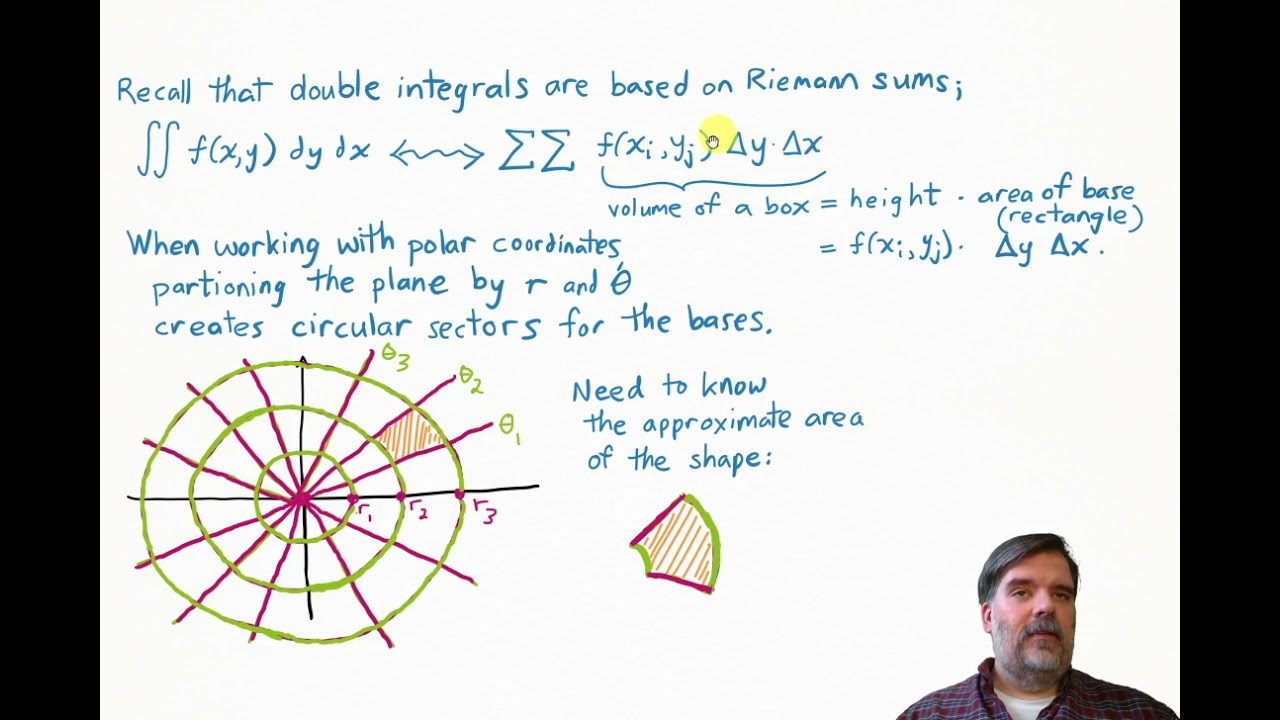 Recall that double integrals are based on Riemann sums;
∬ f(x,y) dy dx ⟷ ΣΣ f(xᵢ,yⱼ) Δy·Δx
volume of a box = height · area of base
(rectangle)
= f(xᵢ,yⱼ)· Δy Δx.
When working with polar coordinates
partioning the plane by r and θ
creates circular sectors for the bases.
θ₃
θ₂
θ₁
r₁ r₂ r₃
Need to know
the approximate area
of the shape: